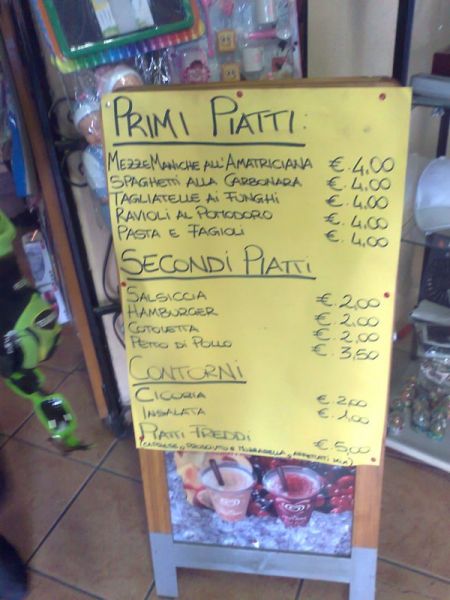 PRIMI PIATTI:
MEZZE MANICHE ALL'AMATRICIANA €.4,00
SPAGHETTI ALLA CARBONARA €.4,00
TAGLIATELLE AI FUNGHI €.4,00
RAVIOLI AL POMODORO €.4,00
PASTA E FAGIOLI €.4,00
SECONDI PIATTI
SALSICCIA €.2,00
HAMBURGER €.2,00
COTOLETTA €.2,00
PETTO DI POLLO €.3,50
CONTORNI
CICORIA €.2,00
INSALATA €.1,00
PIATTI FREDDI €.5,00
(CAPRESE, PROSCIUTTO E MOZZARELLA, AFFETTATI MIX)